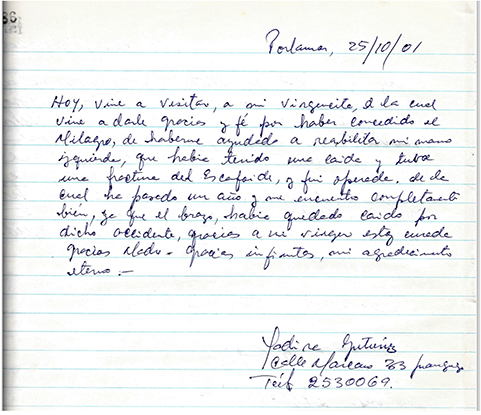 86
Porlamar, 25/10/01
Hoy, vine a visitar, a mi Virgencita, a la cual
vine a darle gracias y fé por haber concedido el
Milagro, de haberme ayudado a reabilitar mi mano
izquierda, que habia tenido una caida y tuve
una fractura del Escafoide, y fui operada. de la
cual ha pasado un año y me encuentro completamente
bién, ya que el brazo, habia quedado caido por
dicho accidente, gracias a mi virgen estoy curada
gracias Madre. Gracias infinitas, mi agradecimiento
eterno.-
Yadira Gutiérrez
Calle Marcano 73
Teléf 2530069.